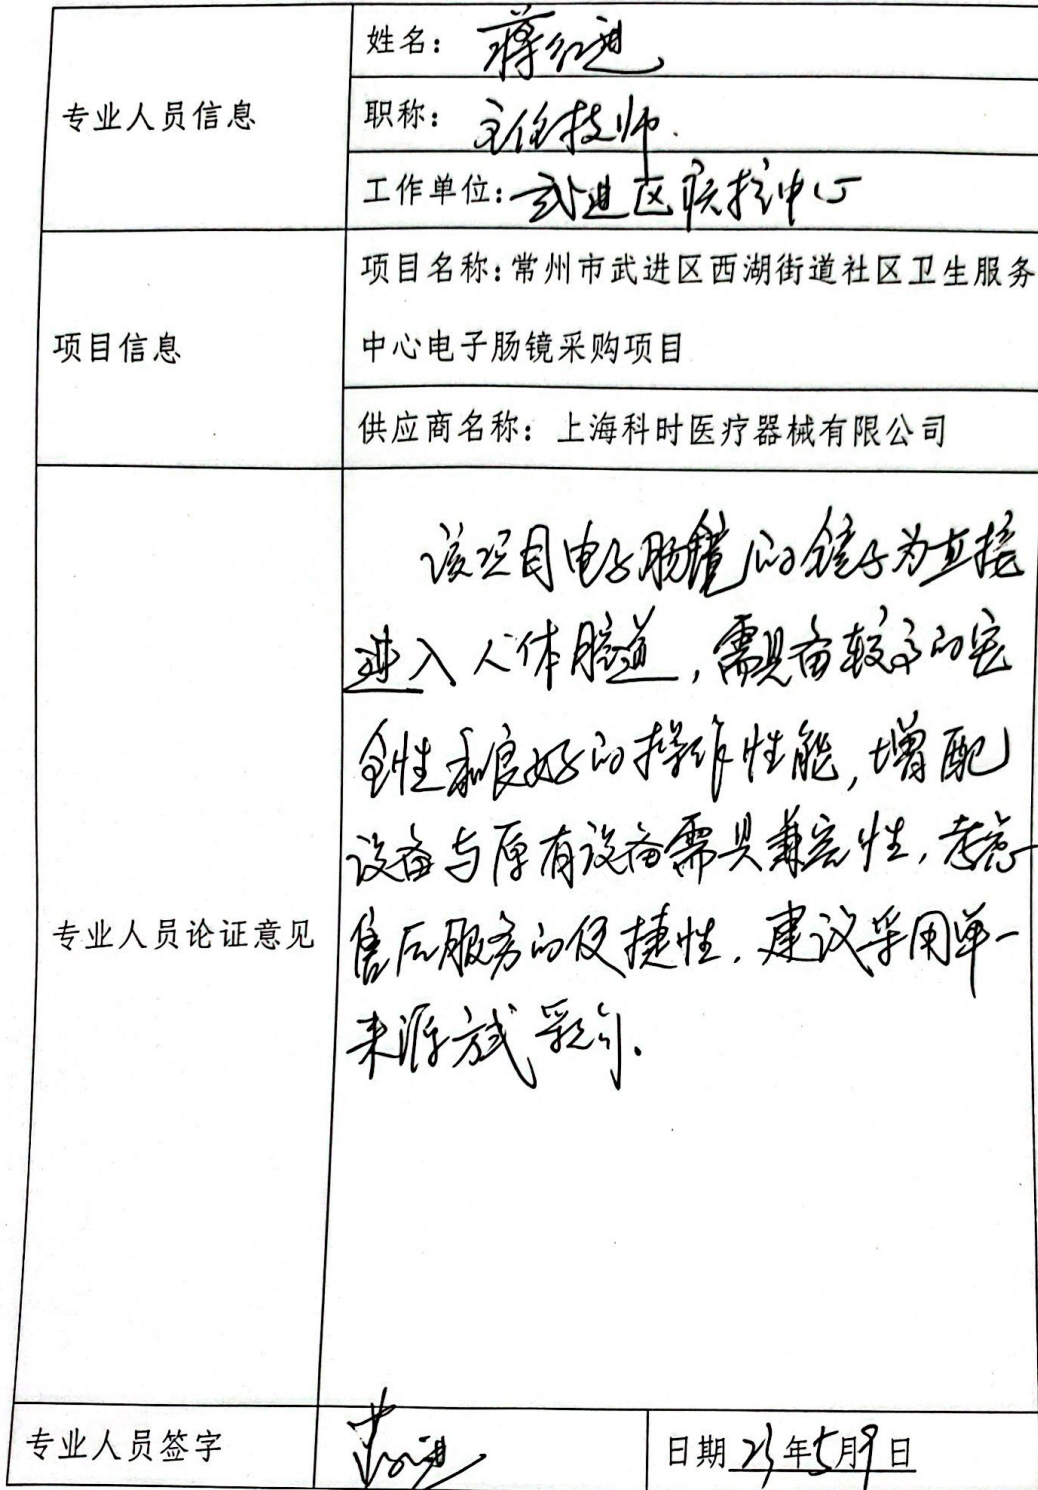 专业人员信息
姓名：蒋红进
职称：主任技师.
工作单位：武进区疾控中心
项目信息
项目名称：常州市武进区西湖街道社区卫生服务
中心电子肠镜采购项目
供应商名称：上海科时医疗器械有限公司
专业人员论证意见
该项目电子肠镜的镜子为直接
进入人体腔道，需具备较高的安
全性和良好的操作性能，增配
设备与原有设备需具兼容性，考虑
售后服务的便捷性，建议采用单一
来源方式采购.
专业人员签字
日期 23 年 5 月 9 日